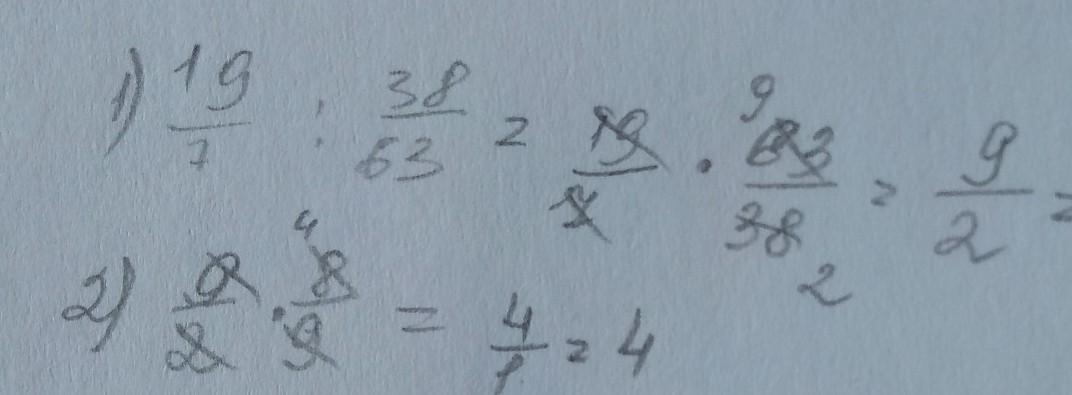 1) 19/7 : 38/63 = 19/7 · 63/38 = 9/2 =
2) 9/2 · 8/9 = 4/1 = 4